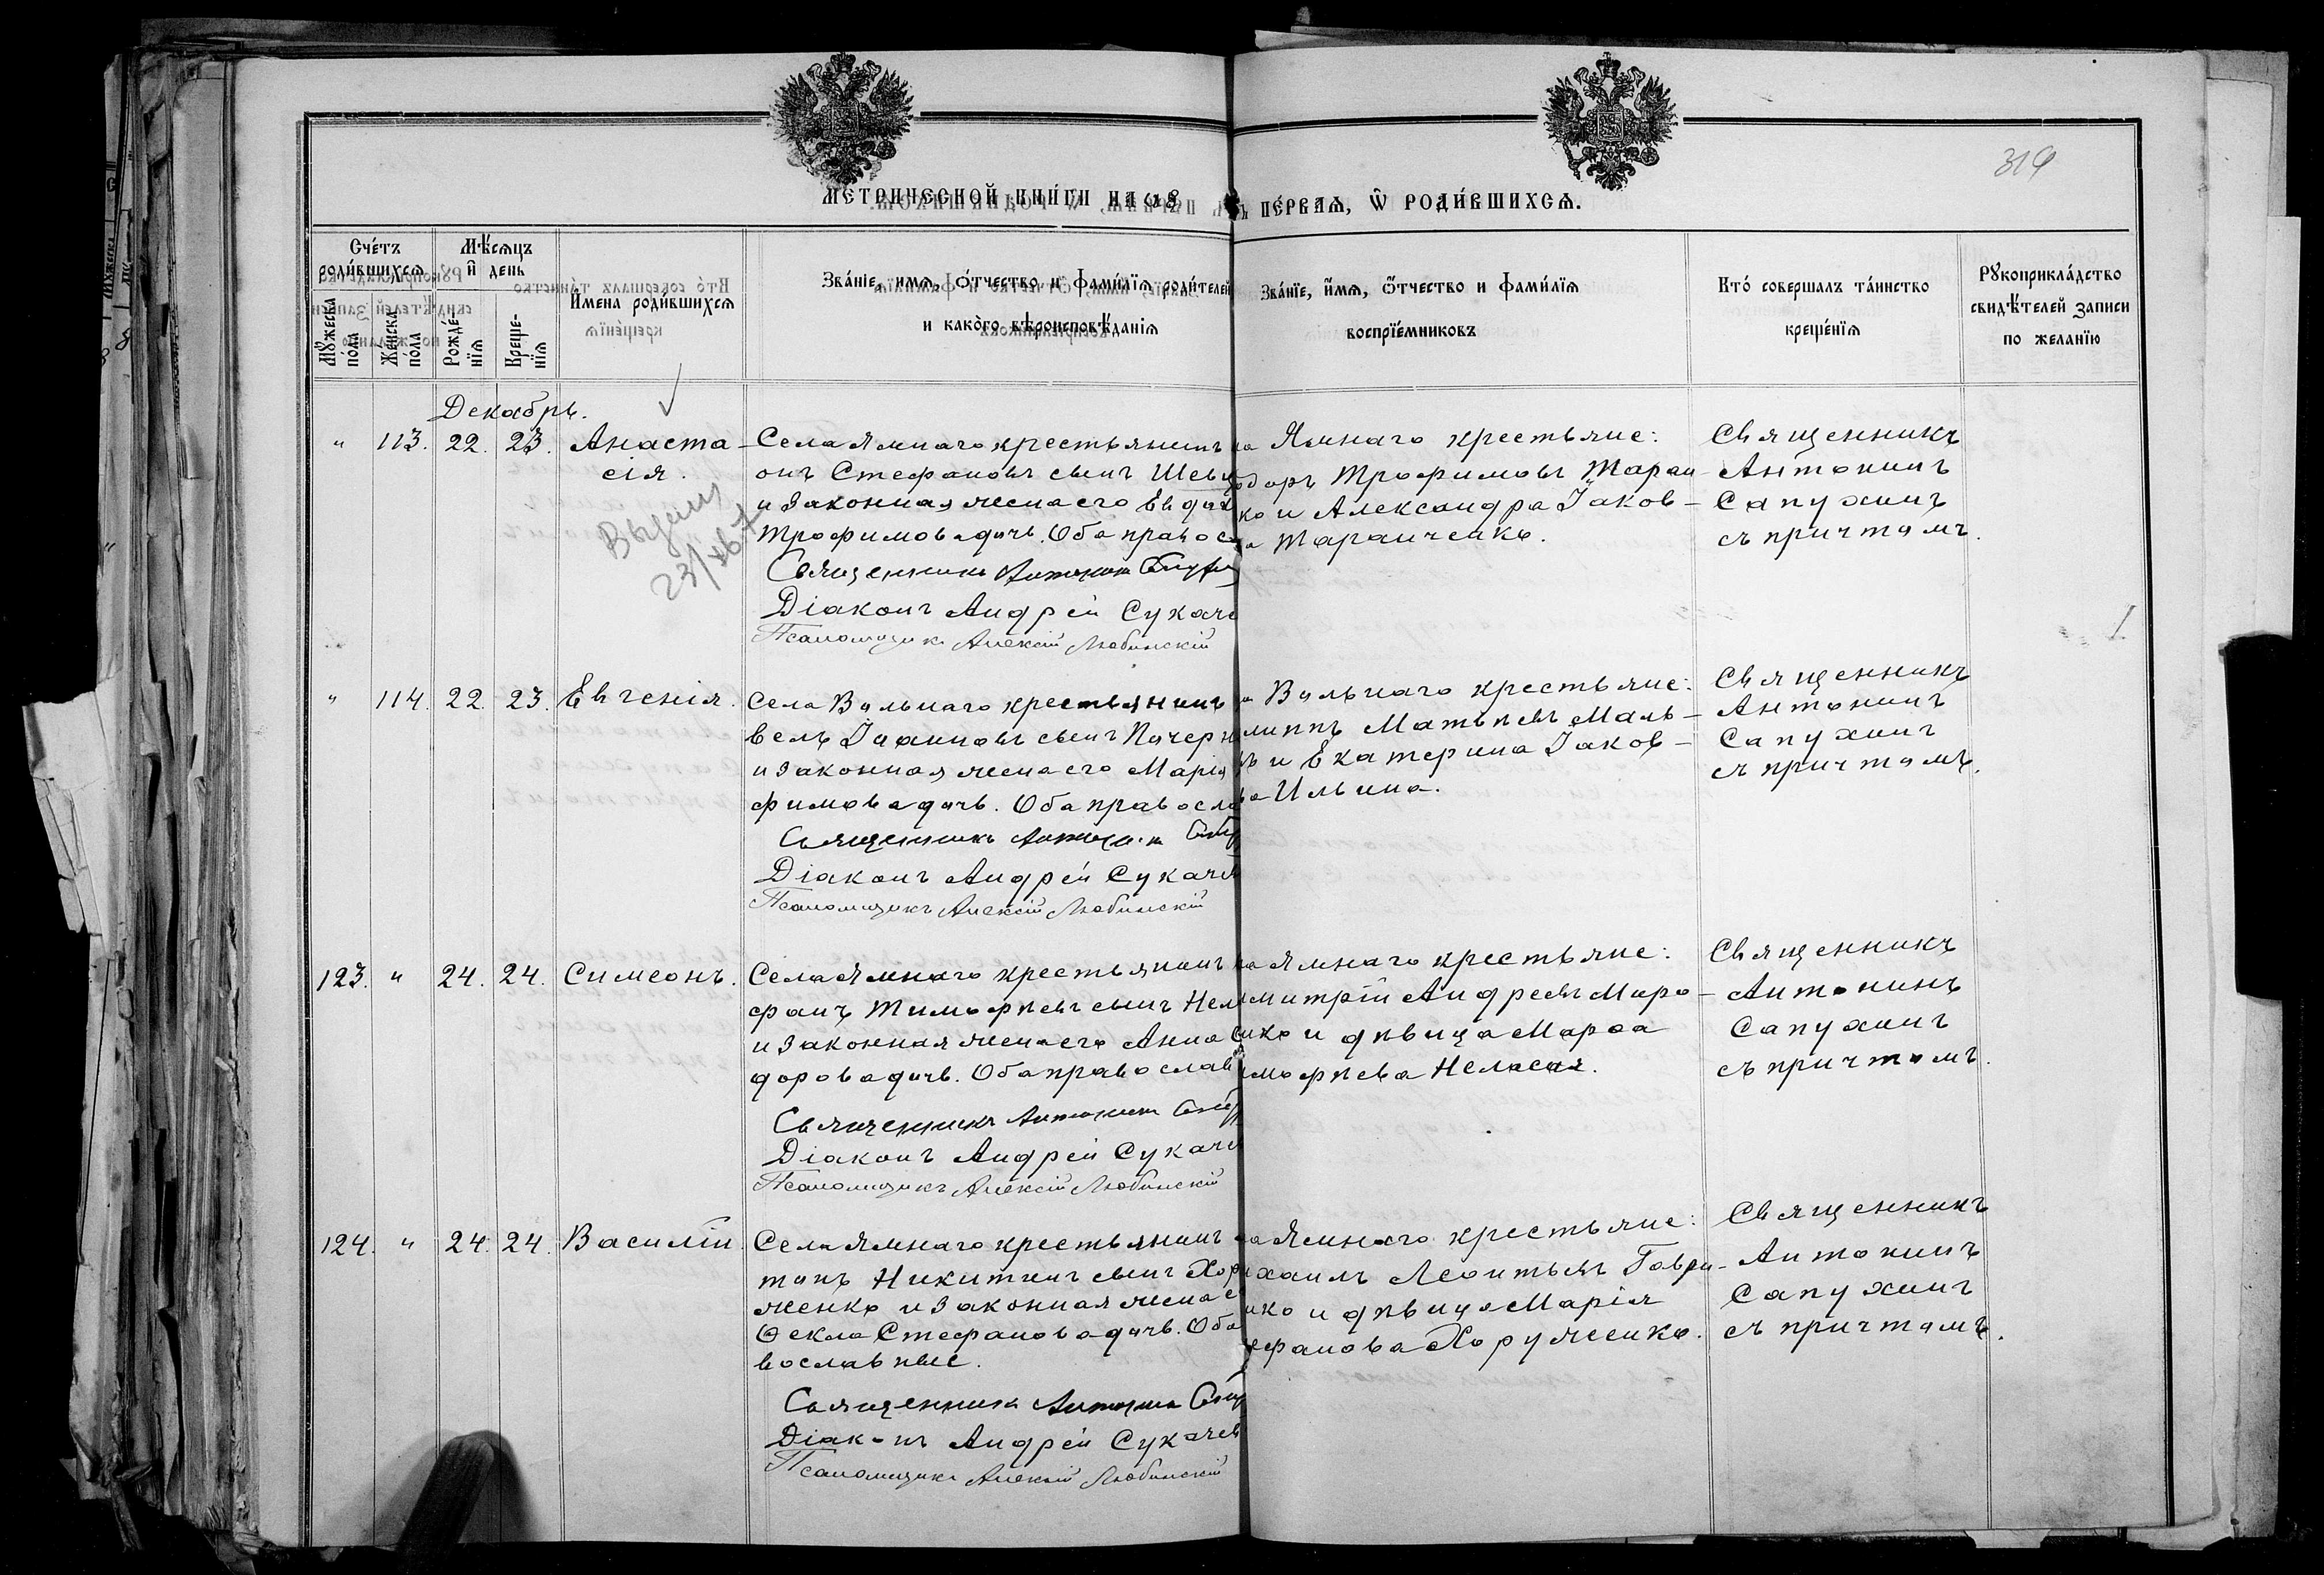 319
МЕТРИЧЕСКОЙ КНИ́ГИ НА
ПЕ́РВАЯ, Ѿ РОДИ́ВШИХСЯ.
Сче́тъ родившихся
Мѣсяцъ и день
Мужеска по́ла
Женска по́ла
Рожде́нія
Креще́нія
Имена роди́вшихся
Зва́ніе, имя, о́тчество и фами́лія роди́телей
и како́го вѣроисповѣ́данія
Зва́ніе, имя, о́тчество и фами́лія
воспріе́мниковъ
Кто́ совершалъ та́инство
креще́нія
Рукоприкла́дство
свидѣ́телей записи
по желанію
Декабрь.
" 113. 22. 23. Анаста-
сія.
23/
Села Ямнаго крестьянинъ
онъ Стефановъ сынъ Шев
и законная жена его Евдок
Трофимова дочь. Оба правос
Священникъ Антонинъ
Діаконъ Андрей Сукаче
Псаломщикъ Алексій Любинскій
Ямнаго крестьяне:
доръ Трофимовъ Таран-
ко и Александра Іаков-
Таранченко.
Священникъ
Антонинъ
Сапухинъ
съ причтомъ.
" 114. 22. 23. Евгенія.
Села Вольнаго крестьянинъ
велъ Іоанновъ сынъ Почерн
и законная жена его Марія
фимова дочь. Оба правосла
Священникъ Антонин
Діаконъ Андрей Сукаче
Псаломщикъ Алексій Любинскій
Вольнаго крестьяне:
липпъ Матѳѣевъ Маль-
и Екатерина Іаков-
ва Ильина.
Священникъ
Антонинъ
Сапухинъ
съ причтомъ.
123. " 24. 24. Симеонъ.
Села Ямнаго крестьянинъ
фанъ Тимофѣевъ сынъ Нел
и законная жена его Анна
дорова дочь. Оба православ
Священникъ Антонинъ
Діаконъ Андрей Сукаче
Псаломщикъ Алексій Любинскій
Ямнаго крестьяне:
митрій Андреевъ Миро-
нко и дѣвица Марѳа
мофѣева Неласая.
Священникъ
Антонинъ
Сапухинъ
съ причтомъ.
124. " 24. 24. Василій
Села Ямнаго крестьянинъ
танъ Никитинъ сынъ Хору
женко и законная жена е
Ѳекла Стефанова дочь. Оба
вославные.
Священникъ Антонинъ
Діаконъ Андрей Сукачев
Псаломщикъ Алексій Любинскій
Ямнаго крестьяне:
хаилъ Леонтьевъ Гаври-
нко и дѣвица Марія
ефанова Хоруженко.
Священникъ
Антонинъ
Сапухинъ
съ причтомъ.